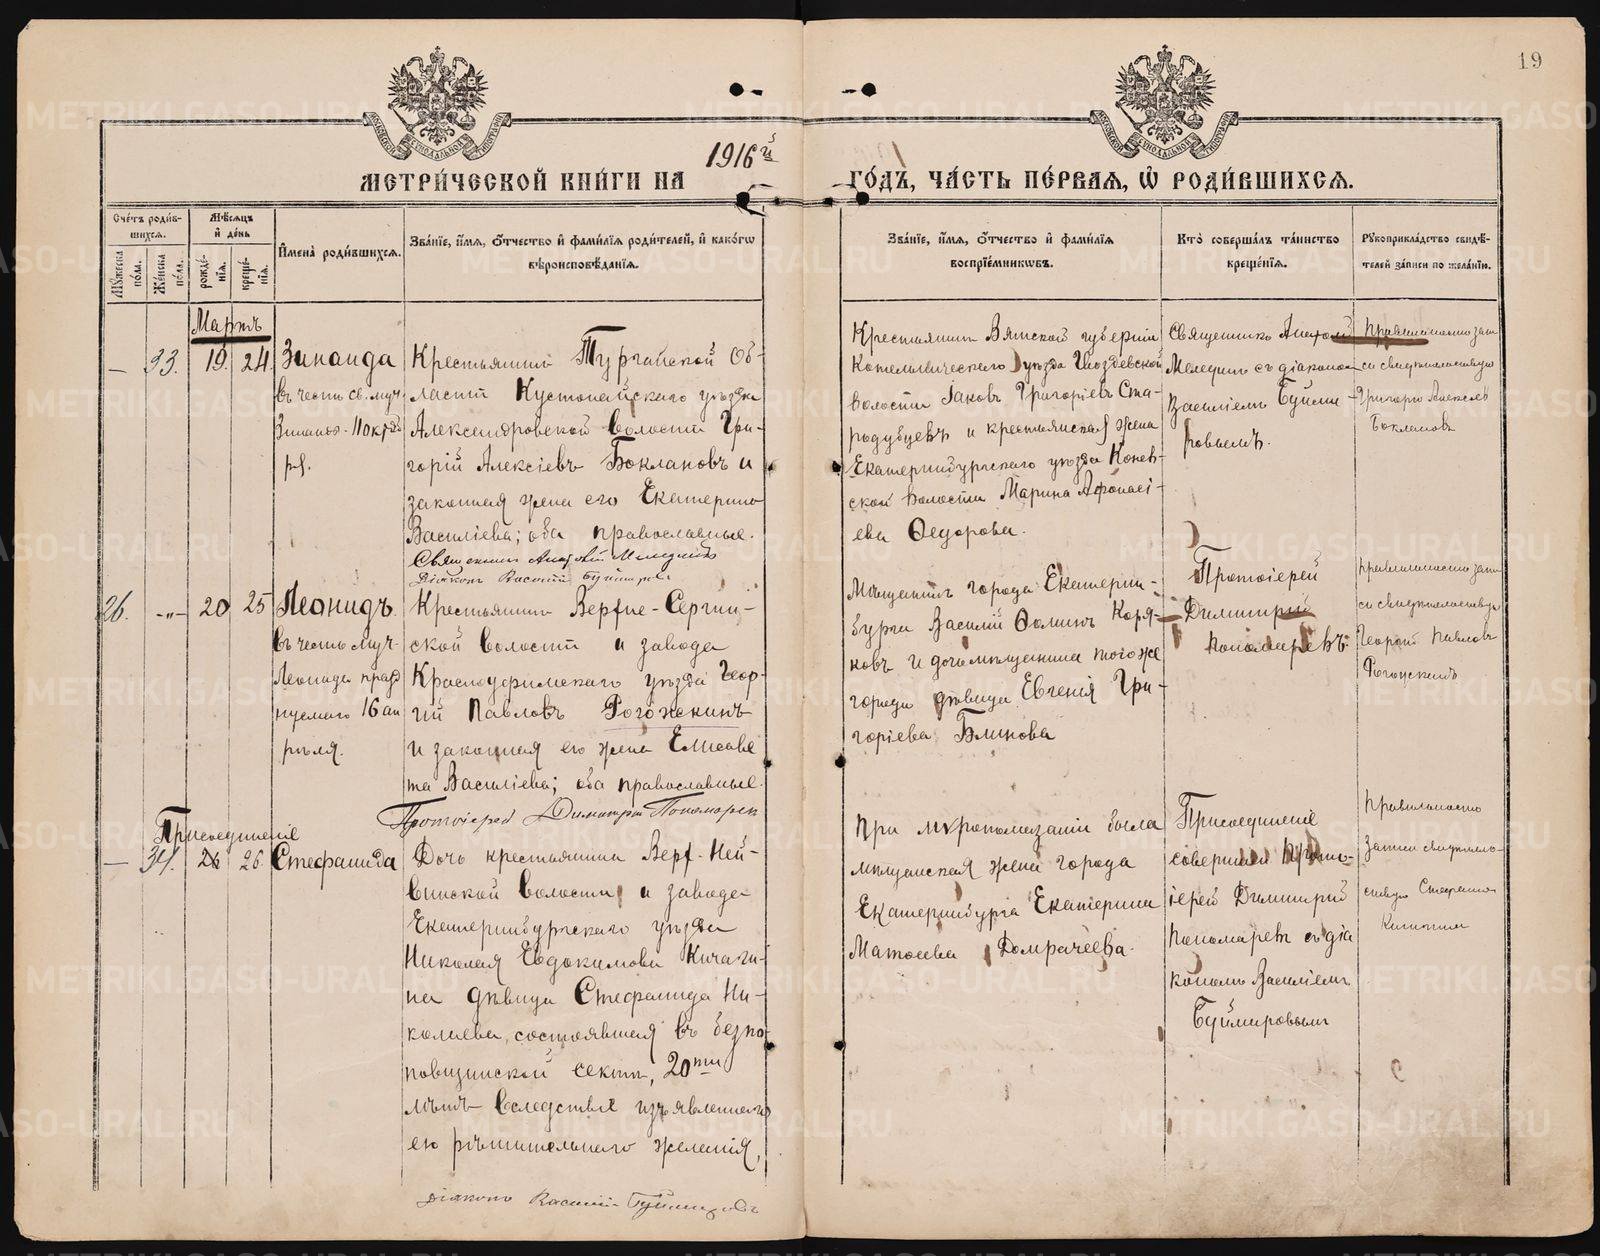 19
1916й
МЕТРИ́ЧЕСКОЙ КНИ́ГИ НА
ГО́ДЪ, ЧА́СТЬ ПЕ́РВАЯ, Ѡ҆ РОДИ́ВШИХСЯ.
Сче́тъ роди́в-
шихся.
Мѣсяцъ
и҆ де́нь
Му́жеска по́ла.
Же́нска по́ла.
рожде́-
нія.
креще́-
нія.
И҆мена̀ роди́вшихся.
Зва́ніе, и҆́мя, ѻ҆́тчество и҆ фами́лія роди́телей, и҆ како́гѡ
вѣроисповѣ́данія.
Зва́ніе, и҆́мя, ѻ҆́тчество и҆ фами́лія
воспріе́мниковъ.
Кто̀ соверша́лъ та́инство
креще́нія.
Рꙋкоприкла́дство свидѣ́-
телей за́писи по жела́нію.
Мартъ
— 33. 19. 24.
Зинаида
въ честь св. муч.
Крестьянинъ Тургайской Об-
ласти Кустанайскаго уѣзда
Александровской волости Гри-
горій Алексіевъ Боклановъ и
законная жена его Екатерина
Василіева; оба православные.
Священникъ
Діаконъ Василій Буймировъ
Крестьянинъ Вятской губерніи
Котельническаго уѣзда Гвоздевской
волости Іаковъ Григоріевъ Ста-
родубцевъ и крестьянская жена
Екатеринбургскаго уѣзда Конев-
ской волости Марина Афонасі-
ева Ѳедорова.
Священникъ
съ діакономъ
Василіемъ Буйми-
ровымъ.
Правильность запи
си свидетельствую
Григорій Алексеевъ
Боклановъ
26. —„— 20 25
Леонидъ.
въ честь муч.
Леонида празд
нуемаго 16 ап
рѣля.
Крестьянинъ Верхне-Сергин-
ской волости и завода
Красноуфимскаго уѣзда Геор-
гій Павловъ Рогожскинъ
и законная его жена Елисаве
та Василіева; оба православные.
Протоіерей Димитрій Пономаревъ
Мѣщанинъ города Екатерин-
бурга Василій Ѳоминъ Коря-
ковъ и дочь мѣщанина того же
города дѣвица Евгенія Гри-
горіева Блинова
Протоіерей
Димитрій
Пономаревъ.
Правильность запи
си свидетельствую
Георгій Павловъ
Присоединеніе
— 34. 26 26
Стефанида
Дочь крестьянина Верх-Ней-
винской волости и завода
Екатеринбургскаго уѣзда
Николая Евдокимова Кичиги-
на дѣвица Стефанида Ни-
колаева, состоявшая въ безпо-
повщинской сектѣ, 20ти
лѣтъ вслѣдствіе изъявленнаго
ею рѣшительнаго желанія,
діаконъ Василій Буймировъ
При мѵропомазаніи была
мѣщанская жена города
Екатеринбурга Екатерина
Матѳеева Домрачеева.
Присоединеніе
совершилъ Прото-
іерей Димитрій
Пономаревъ съ діа
кономъ Василіемъ
Буймировымъ
Правильность
записи свидетель-
ствую Стефанида
METRIKI.GASO-URAL.RU